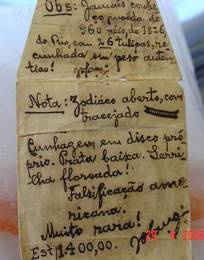 Obs: Jamais conhe
ço moeda de
960 réis, de 1826
do Rio, com 26 tulipas, re
cunhada em peso autên
tico!
Nota: Zodíaco aberto, com
tracejado
Cunhagem em disco pró
prio. Prata baixa. Servi
lha floreada!
Falsificação ame
ricana.
Muito rara!
Est 1.400,00.